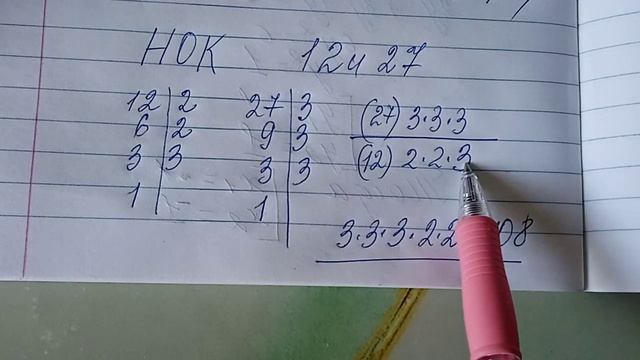 НОК 12 и 27
12 2 27 3 (27) 3·3·3
6 2 9 3
3 3 3 3 (12) 2·2·3
1 1
3·3·3·2·2 08